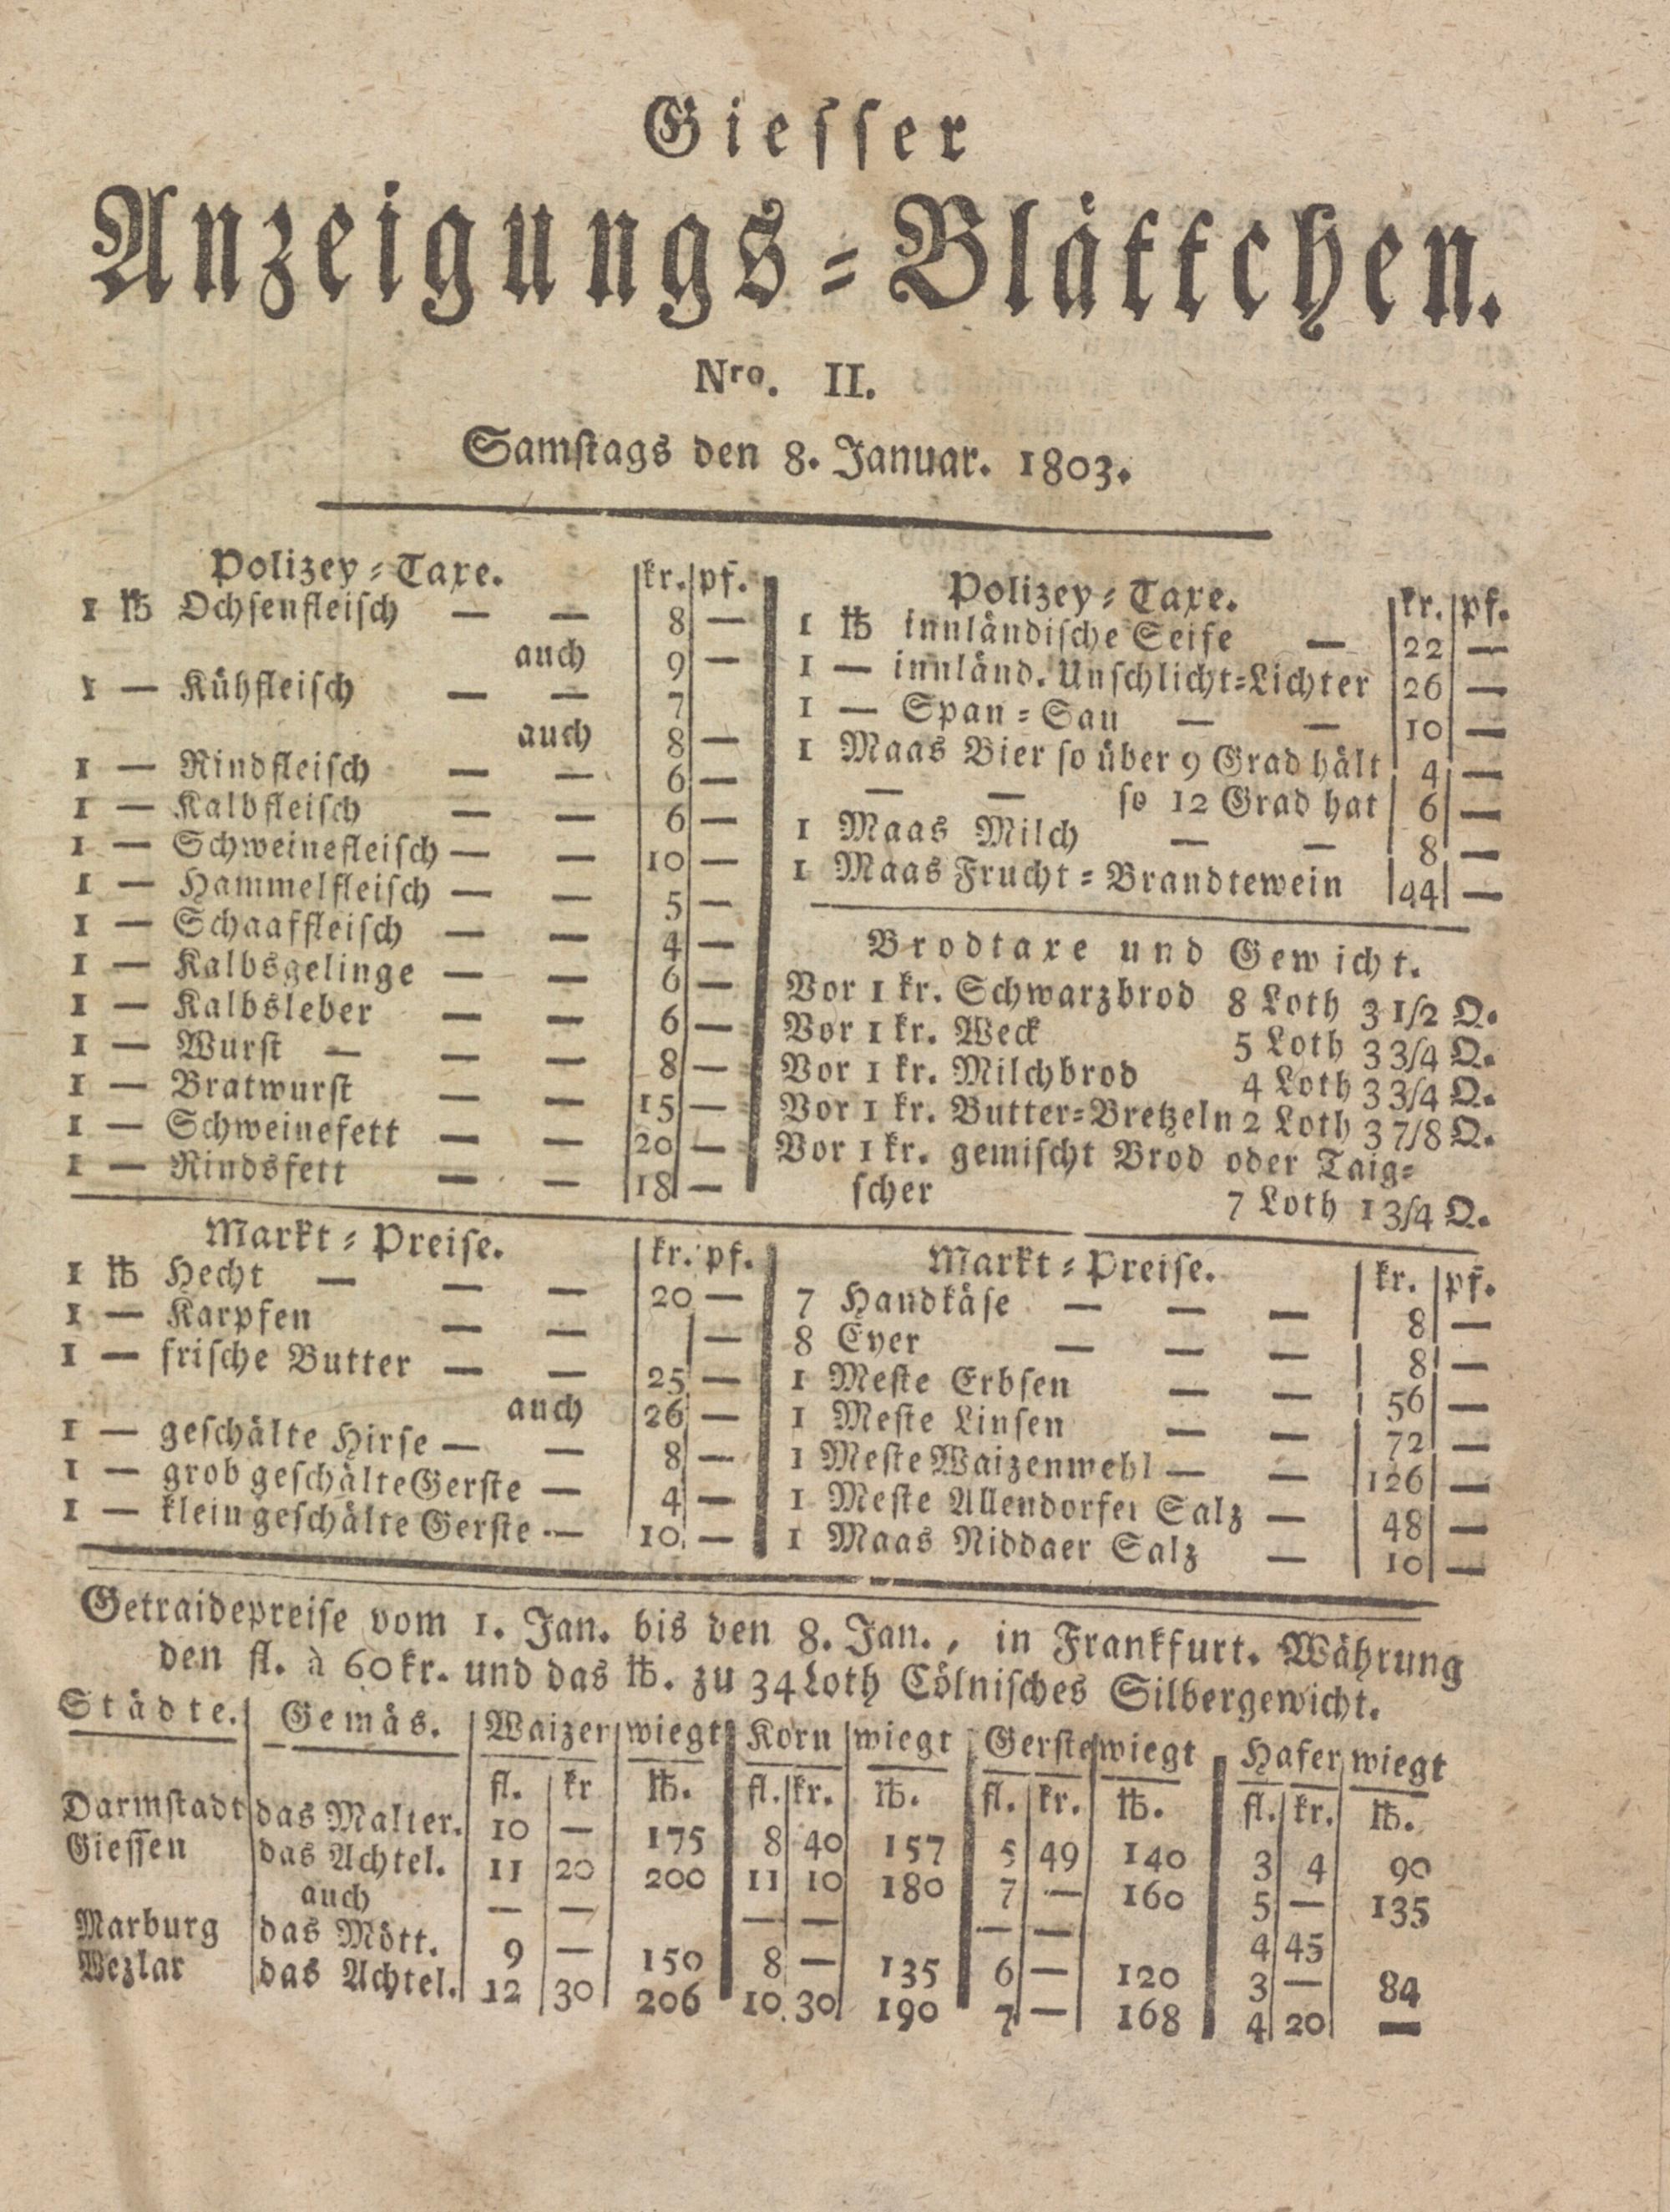 Giesser
Anzeigungs-Blättchen.
Nro. II.
Samstags den 8. Januar. 1803.
Polizey-Taxe. kr. pf.
1 ℔ Ochsenfleisch — — 8 —
auch 9 —
1 — Kühfleisch — — 7
auch 8 —
1 — Rindfleisch — — 6 —
1 — Kalbfleisch — — 6 —
1 — Schweinefleisch — — 10 —
1 — Hammelfleisch — — 5 —
1 — Schaaffleisch — — 4 —
1 — Kalbsgelinge — — 6 —
1 — Kalbsleber — — 6 —
1 — Wurst — — — 8 —
1 — Bratwurst — — 15 —
1 — Schweinefett — — 20 —
1 — Rindsfett — — 18 —
Polizey-Taxe. kr. pf.
1 ℔ innländische Seife — 22 —
1 — innländ. Unschlicht-Lichter 26 —
1 — Span-Sau — — 10 —
1 Maas Bier so über 9 Grad hält 4 —
— — so 12 Grad hat 6 —
1 Maas Milch — — 8 —
1 Maas Frucht-Brandtewein 44 —
Brodtaxe und Gewicht.
Vor 1 kr. Schwarzbrod 8 Loth 3 1/2 Q.
Vor 1 kr. Weck 5 Loth 3 3/4 Q.
Vor 1 kr. Milchbrod 4 Loth 3 3/4 Q.
Vor 1 kr. Butter-Bretzeln 2 Loth 3 7/8 Q.
Vor 1 kr. gemischt Brod oder Taig-
scher 7 Loth 1 3/4 Q.
Markt-Preise. kr. pf.
1 ℔ Hecht — — — 20 —
1 — Karpfen — — —
1 — frische Butter — — 25 —
auch 26 —
1 — geschälte Hirse — — 8 —
1 — grob geschälte Gerste — 4 —
1 — klein geschälte Gerste — 10 —
Markt-Preise. kr. pf.
7 Handkäse — — — 8 —
8 Eyer — — — 8 —
1 Meste Erbsen — — 56 —
1 Meste Linsen — — 72 —
1 Meste Waizenmehl — — 126 —
1 Meste Allendorfer Salz — 48 —
1 Maas Niddaer Salz — 10 —
Getraidepreise vom 1. Jan. bis den 8. Jan., in Frankfurt. Währung
den fl. à 60 kr. und das ℔. zu 34 Loth Cölnisches Silbergewicht.
Städte. Gemäs. Waizen wiegt Korn wiegt Gerste wiegt Hafer wiegt
fl. kr ℔. fl. kr. ℔. fl. kr. ℔. fl. kr. ℔.
Darmstadt das Malter. 10 — 175 8 40 157 5 49 140 3 4 90
Giessen das Achtel. 11 20 200 11 10 180 7 — 160 5 — 135
auch — — — — — — 4 45
Marburg das Mött. 9 — 150 8 — 135 6 — 120 3 — 84
Wezlar das Achtel. 12 30 206 10 30 190 7 — 168 4 20 —